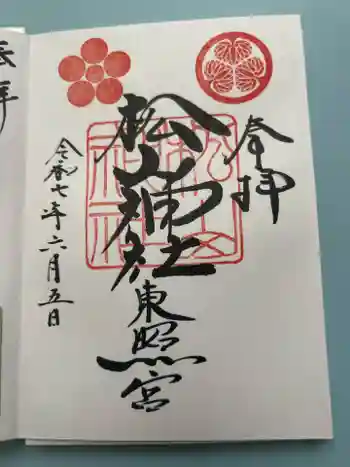 奉拝
松山神社
東照宮
令和七年六月五日
拝